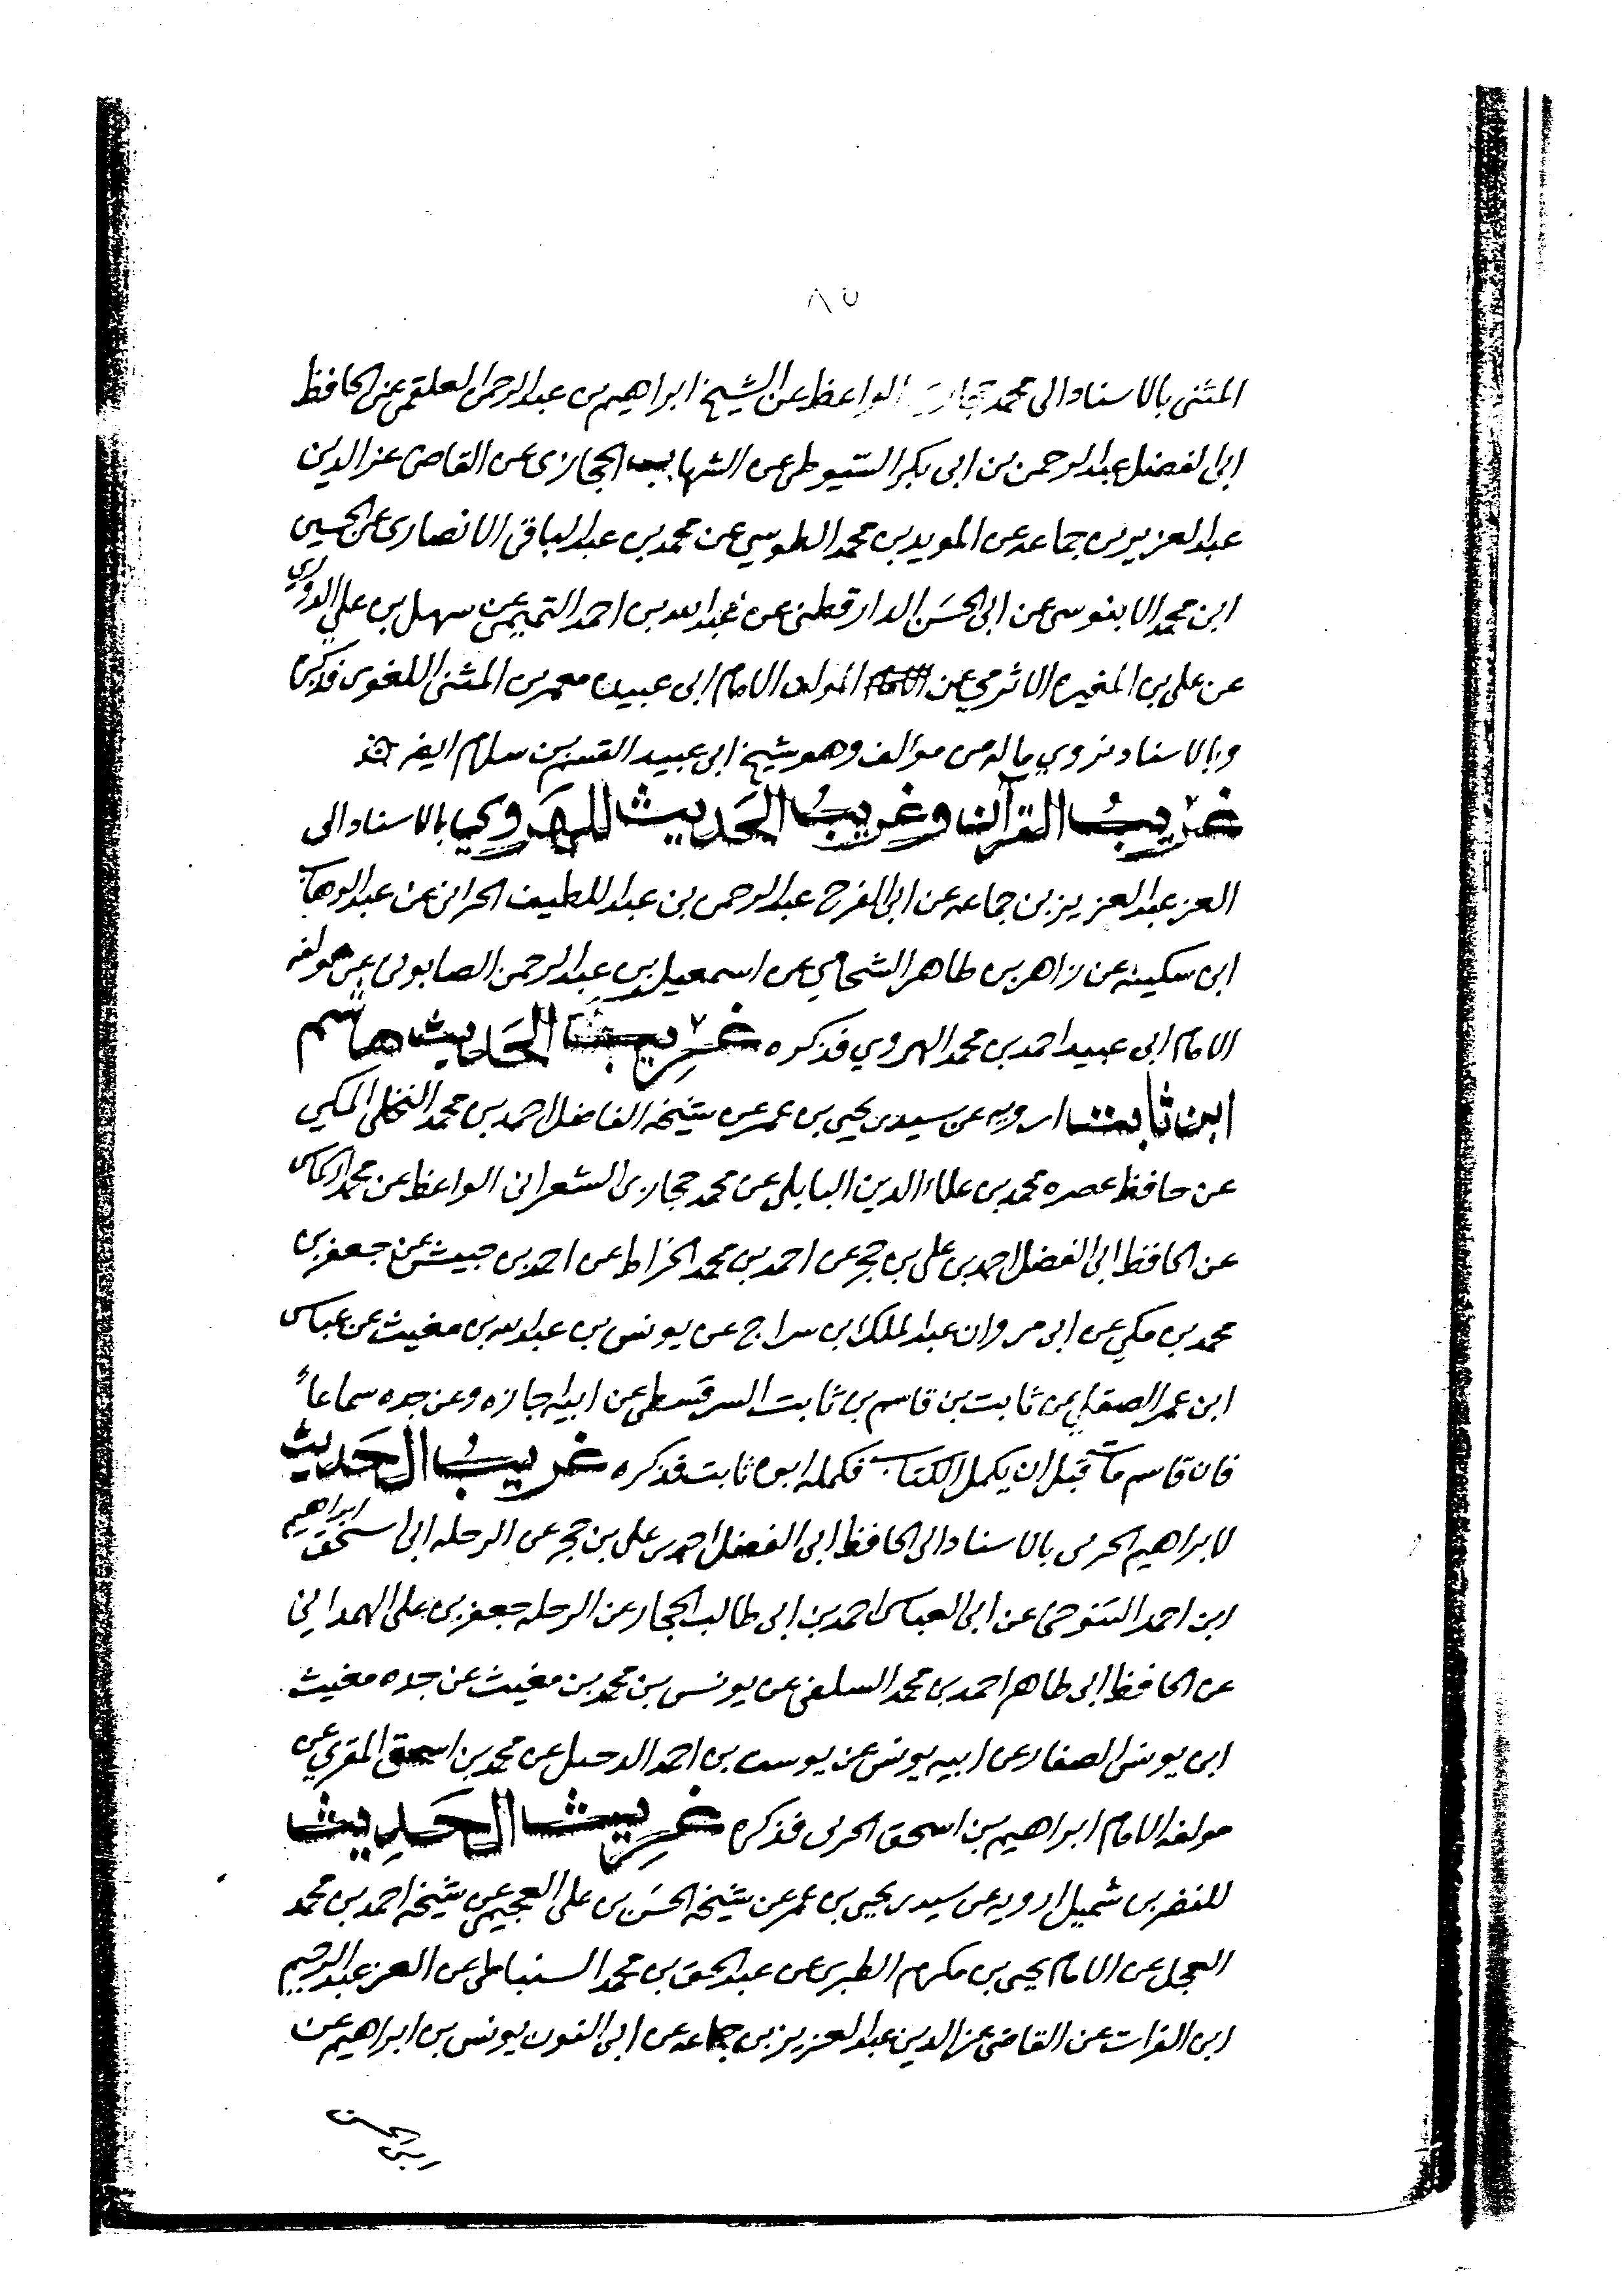 ٨٥
المثنى بالاسناد الى محمد حجازي الواعظ عن الشيخ ابراهيم بن عبد الرحمن العلقمي عن الحافظ
ابى الفضل عبد الرحمن بن ابى بكر السيوطى عن الشهاب الحجازى عن القاضى عز الدين
عبد العزيز بن جماعه عن المويد بن محمد الطوسي عن محمد بن عبد الباقى الانصارى عن الحسين
ابن محمد الابنوسى عن ابى الحسَن الدارقطنى عن عبد الله بن احمد التميمى عن سهل بن علي الدوري
عن على بن المغيره الاثرمي عن المولف الامام ابى عبيده معمر بن المثنى اللغوى فذكره
وبالاسناد نروي ماله من موالف وهو شيخ ابى عبيد القسم بن سلام ايضا
غريبُ القرآن وغريبُ الحَديث للهَروي بالاسناد الى
العز عبد العزيز بن جماعه عن ابى الفرج عبد الرحمن بن عبد اللطيف الحرانى عن عبد الوهاب
ابن سكينه عن زاهر بن طاهر الشحامي عن اسمعيل بن عبد الرحمن الصابونى عن مولفه
الامام ابى عبيد احمد بن محمد الهروي فذكره غريب الحَديث قاسم
ابن ثابت ارويه عن سيدى يحيى بن عمر عن شيخه الفاضل احمد بن محمد النخلى المكي
عن حافظ عصره محمد بن علاء الدين البابلى عن محمد حجازى الشعرانى الواعظ عن محمد اركماس
عن الحافظ ابى الفضل احمد بن على بن حجر عن احمد بن محمد الخراط عن احمد بن حبيش عن جعفر بن
محمد بن مكي عن ابى مروان عبد الملك ابن سراج عن يونس بن عبد الله بن مغيث عن عباس
ابن عمر الصقلي عن ثابت بن قاسم بن ثابت السرقسطى عن ابيه اجازه وعن جده سماعاً
فان قاسم مات قبل ان يكمل الكتاب فكمله ابوه ثابت فذكره غريبُ الحَديث
لابراهيم الحربى بالاسناد الى الحافظ ابى الفضل احمد بن على بن حجر عن الرحله ابى اسحق ابراهيم
ابن احمد التنوخى عن ابى العباس احمد بن ابى طالب الحجار عن الرحله جعفر بن على الهمداني
عن الحافظ ابى طاهر احمد بن محمد السلفى عن يونس بن محمد بن مغيث عن جده مغيث
ابن يونس الصفار عن ابيه يونس عن يوسف بن احمد الدحيل عن محمد بن اسحق المقري عن
مولفه الامام ابراهيم بن اسحق الحربى فذكره غريب الحَديث
للنضر بن شميل ارويه عن سيدى يحيى بن عمر عن شيخه الحسَن بن على العجيمى عن شيخه احمد بن محمد
العجل عن الامام يحيى بن مكرم الطبرى عن عبد الحق بن محمد السنباطى عن العز عبد الرحيم
ابن الفرات عن القاضى عز الدين عبد العزيز بن جماعه عن ابى النون يونس بن ابراهيم عن